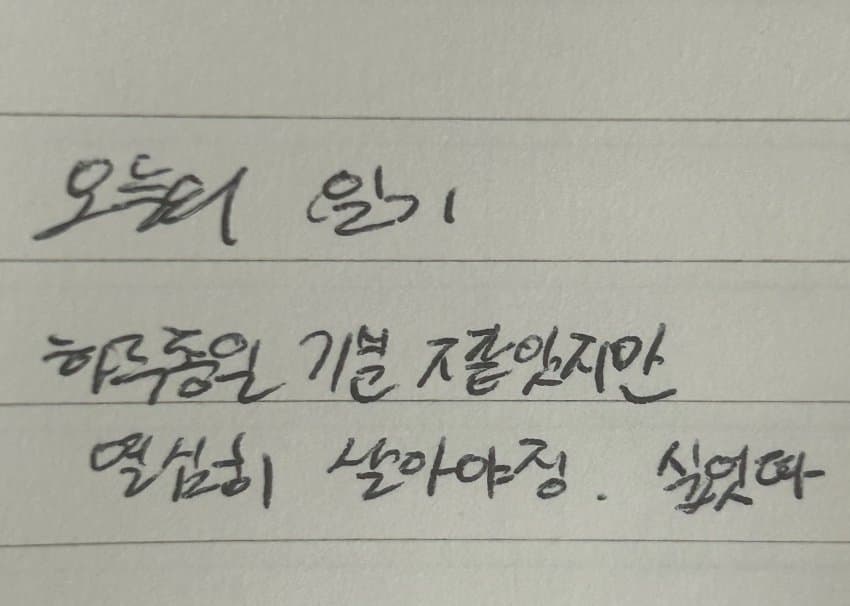 오늘의 일기
하루종일 기분 ㅈ같았지만
열심히 살아야징. 싶었따